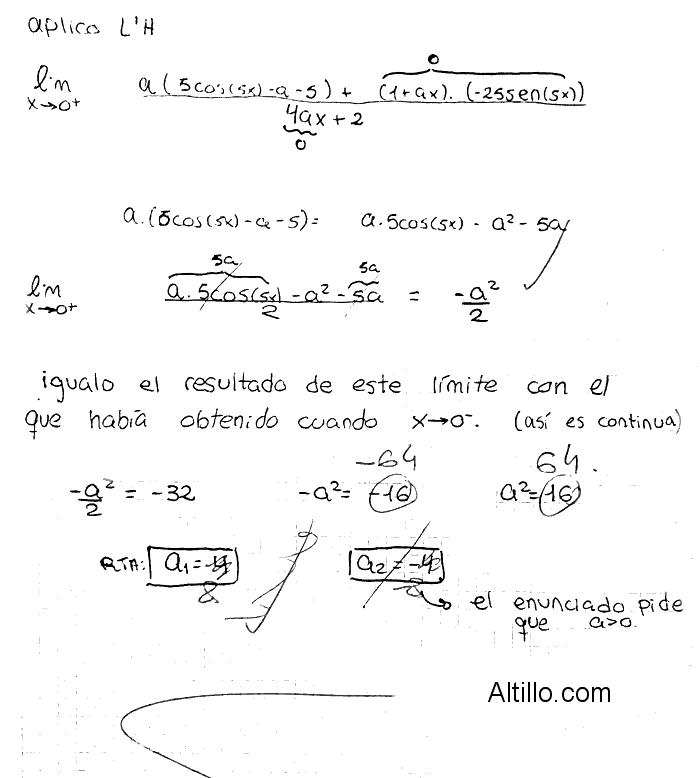 aplico L'H
0
lim x→0+ a(5cos(5x)-a-5) + (1+ax).(-25sen(5x))
4ax + 2
0
a.(5cos(5x)-a-5)= a.5cos(5x) - a² - 5a
5a 5a
lim x→0+ a.5cos(5x) - a² - 5a = -a²
2 2
igualo el resultado de este límite con el
que había obtenido cuando x→0-. (así es continua)
-64 64.
-a²/2 = -32 -a² = -16 a² = 16
RTA: a₁ = 4 a₂ = -4
8 -8 el enunciado pide
que a>0.
Altillo.com